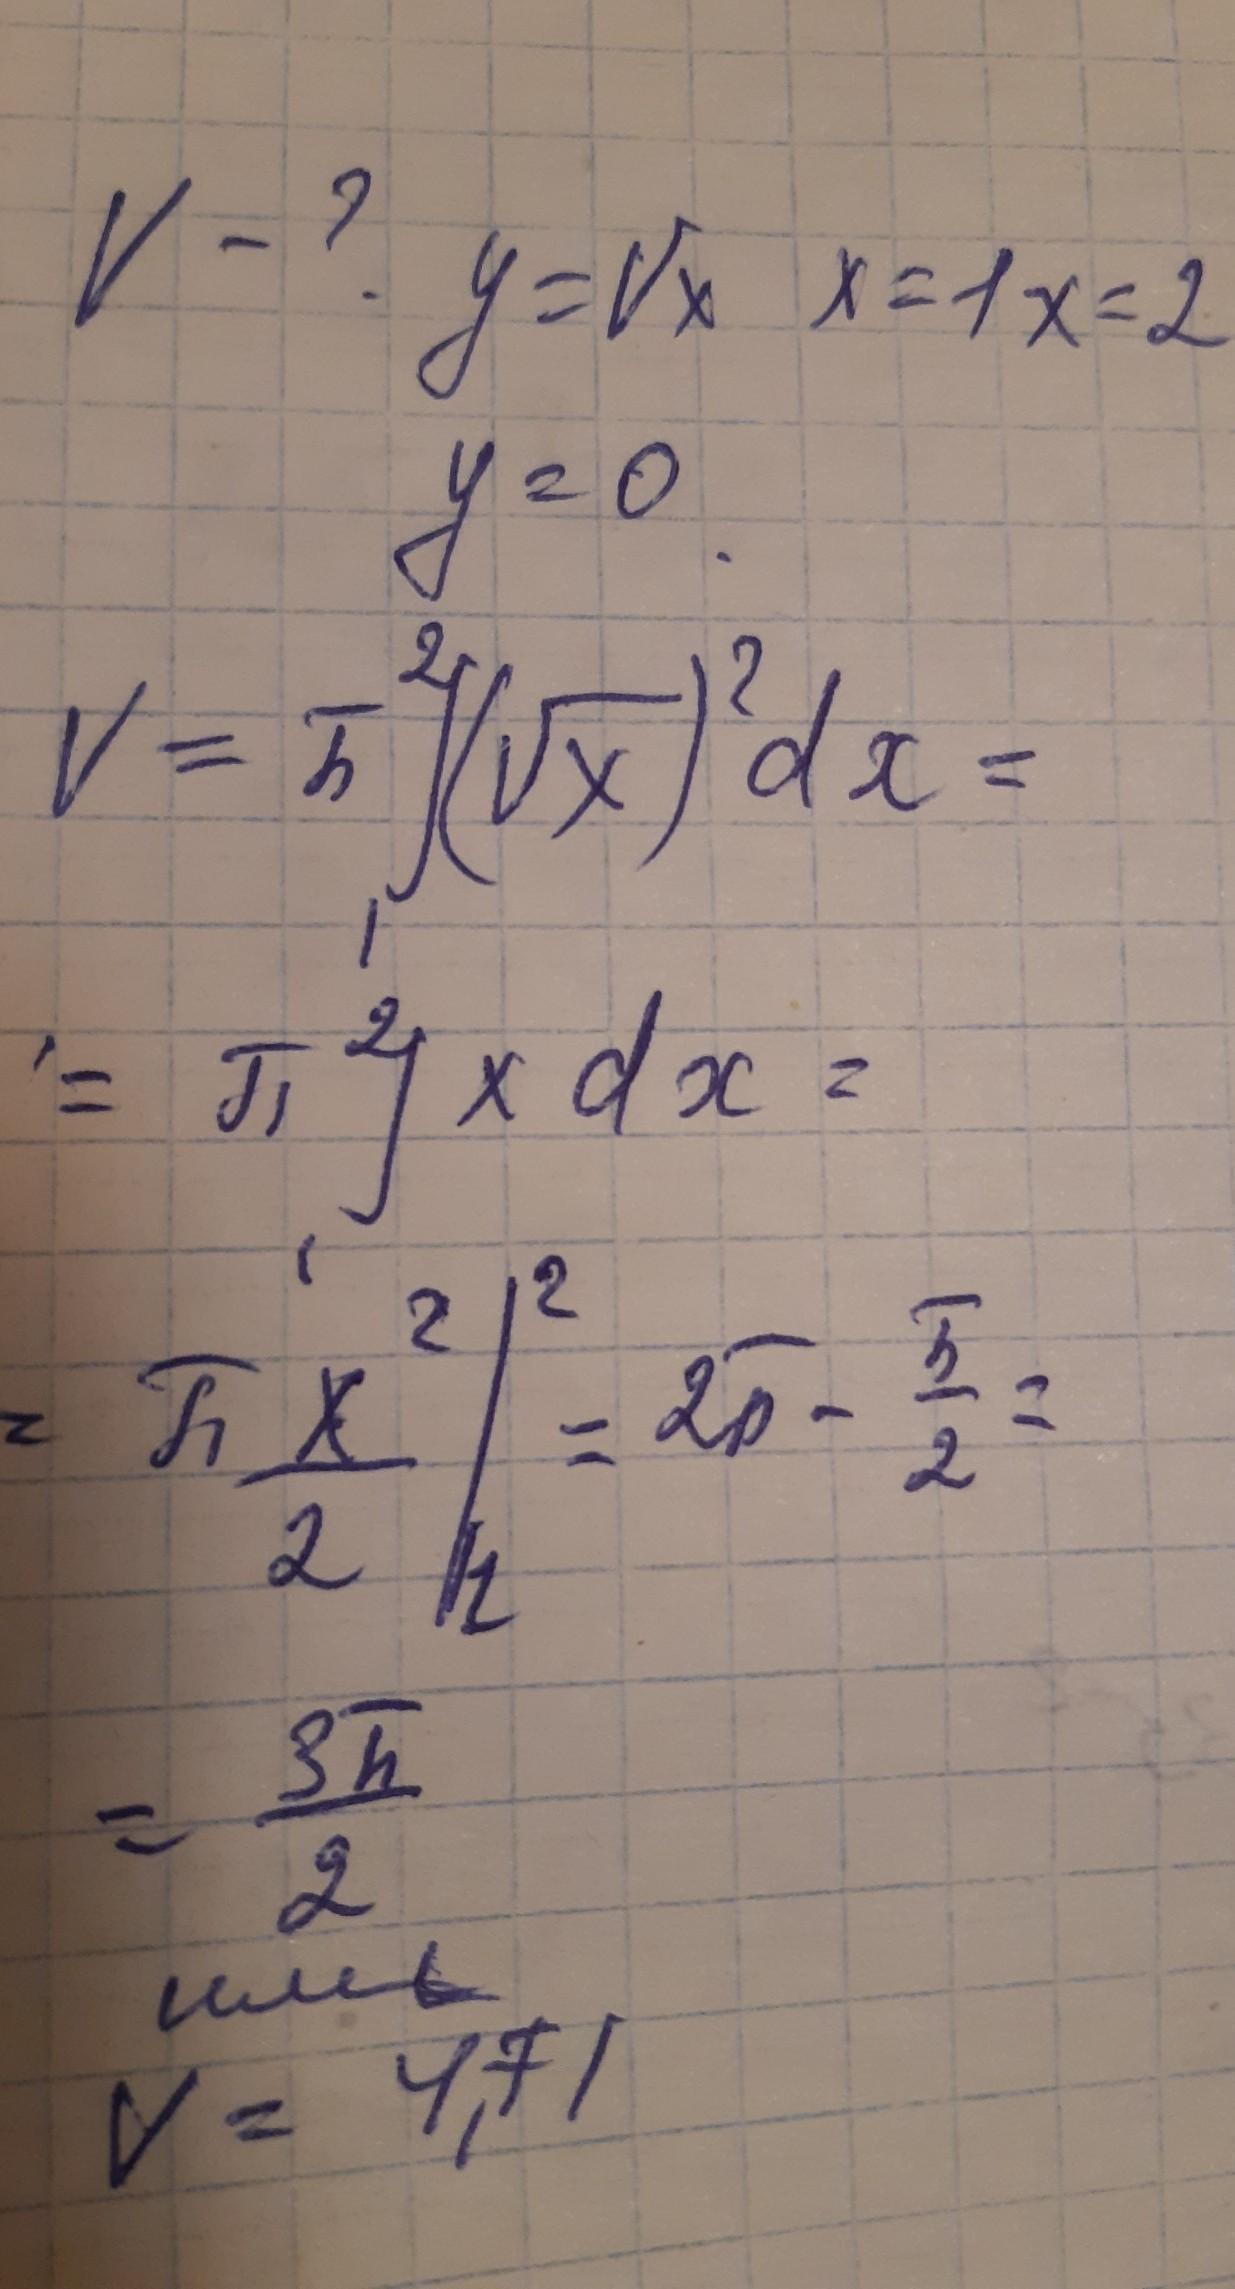 V - ? y = √x x = 1 x = 2
y = 0.
V = π ∫₁² (√x)² dx =
= π ∫₁² x dx =
= π x²/2 |₁² = 2π - π/2 =
= 3π/2
или
V = 4,71